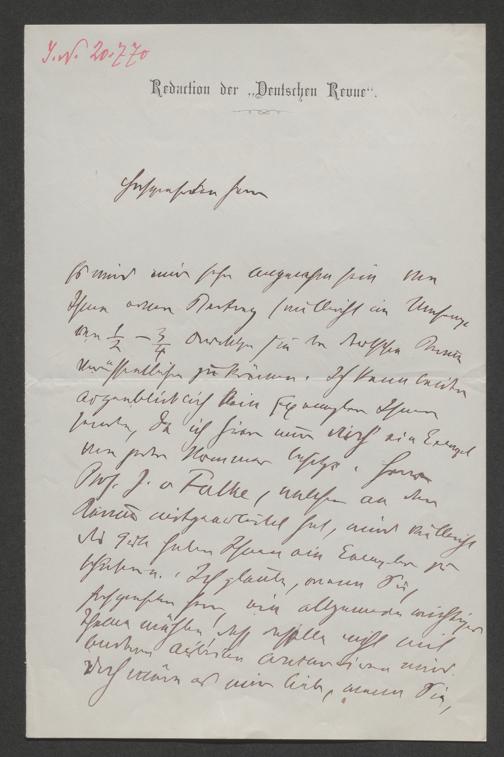 J.N. 20.770
Redaction der „Deutschen Revue“.
Hochgeehrter Herr
Es wird mir sehr angenehm sein von
Ihnen einen Beitrag (vielleicht im Umfange
von ½ – ¾ Bogen für die Deutsche Revue
veröffentlichen zu können. Ich kann leider
augenblicklich kein Exemplar Ihnen
senden, da ich hier nur noch ein Exempl
von jeder Nummer besitze. Herr
Prof. J. v Falke, welcher an der
Revue mitgearbeitet hat, wird vielleicht
die Güte haben Ihnen ein Exemplar zu
Ich glaube, wenn Sie,
hochgeehrter Herr, ein allgemein wichtiges
Thema wählen, daß dasselbe nicht mit
andern wird.
Doch wäre es mir lieb, wenn Sie,